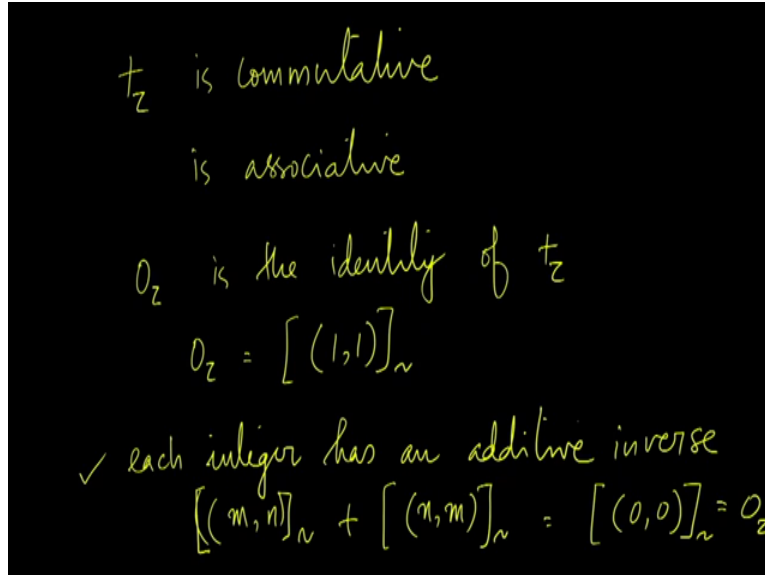 +_z is commutative
is associative
0_z is the identity of +_z
0_z = [(1,1)]_~
✓ each integer has an additive inverse
[(m,n)]_~ + [(n,m)]_~ = [(0,0)]_~ = 0_z